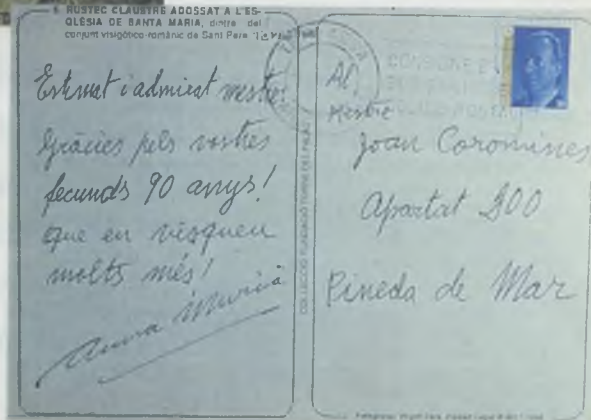 RÚSTEC CLAUSTRE ADOSSAT A L'ES-
GLÉSIA DE SANTA MARIA, dintre del
conjunt visigòtico-romànic de Sant Pere
Estimat i admirat mestre:
Gràcies pels vostres
fecunds 90 anys!
que en visqueu
molts més!
Anna Murià
COL·LECCIÓ FUNDACIÓ TORRE DEL PALAU
Al
Mestre
Joan Coromines
Apartat 300
Pineda de Mar